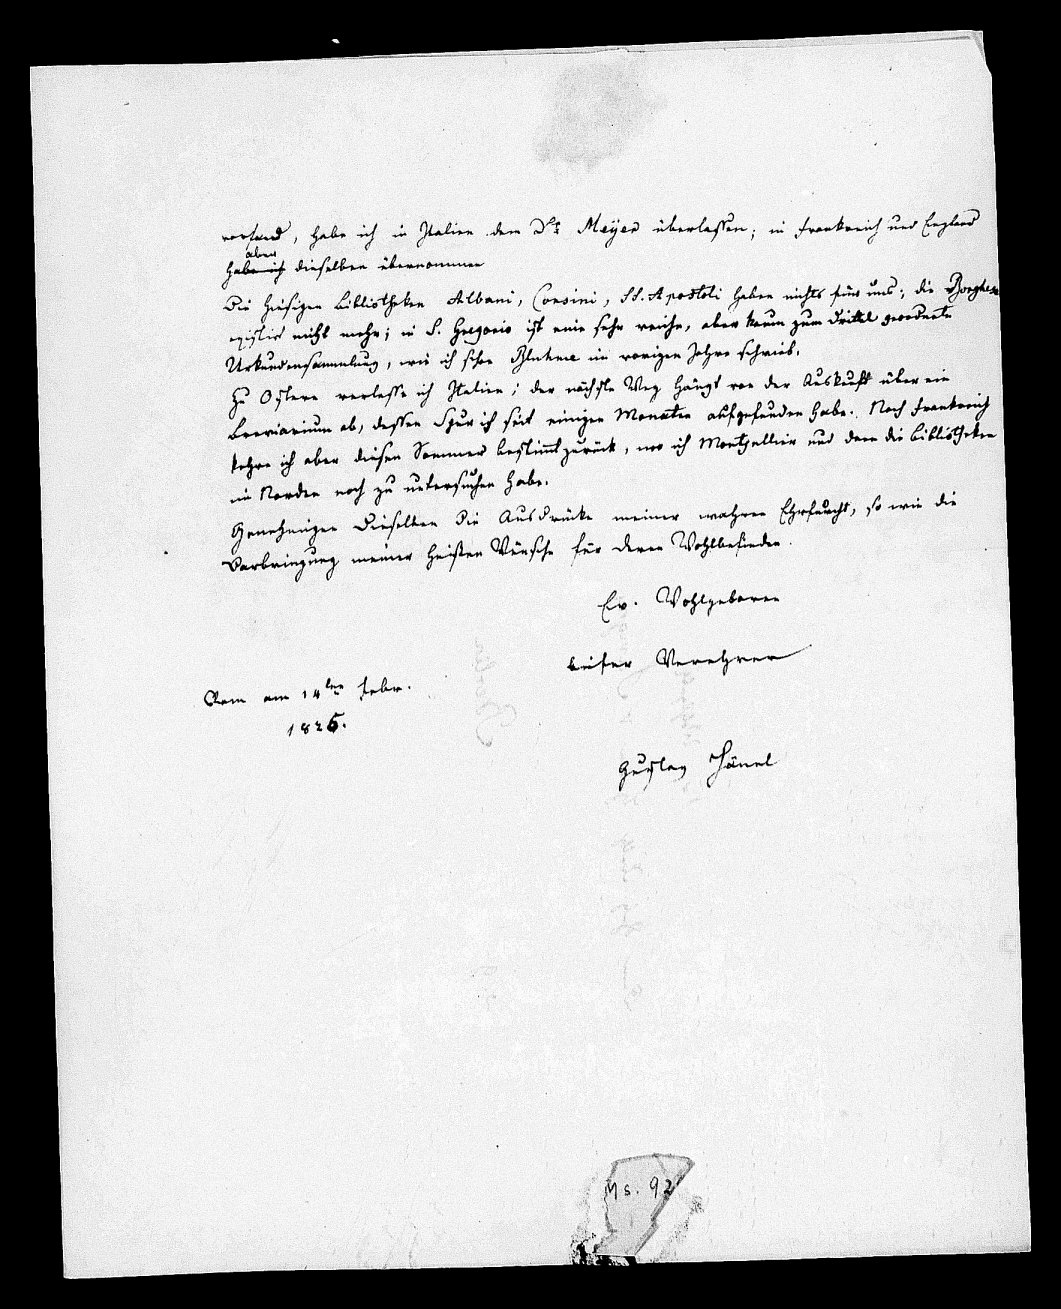 vorfand, habe ich in Italien dem Dr Meyer überlassen; in Frankreich und England
aber
habe ich dieselben übernommen
Die hiesigen Bibliotheken Albani, Corsini, SS. Apostoli haben nichts für uns; die Borghese
existirt nicht mehr; in S. Gregorio ist eine sehr reiche, aber kaum zum Drittel geordnete
Urkundensammlung, wie ich schon Bluhme im vorigen Jahre schrieb.
Zu Ostern verlasse ich Italien; der nächste Weg hängt von der Auskunft über ein
Breviarium ab, dessen Spur ich seit einigen Monaten aufgefunden habe. Nach Frankreich
kehre ich aber diesen Sommer bestimmt zurück, wo ich Montpellier und dann die Bibliotheken
im Norden noch zu untersuchen habe.
Genehmigen Dieselben die Ausdrücke meiner wahren Ehrfurcht, so wie die
Darbringung meiner heißen Wünsche für deren Wohlbefinden.
Ew. Wohlgeboren
tiefer Verehrer
Rom am 14ten Febr.
1825.
Gustav Hänel
Ms. 92